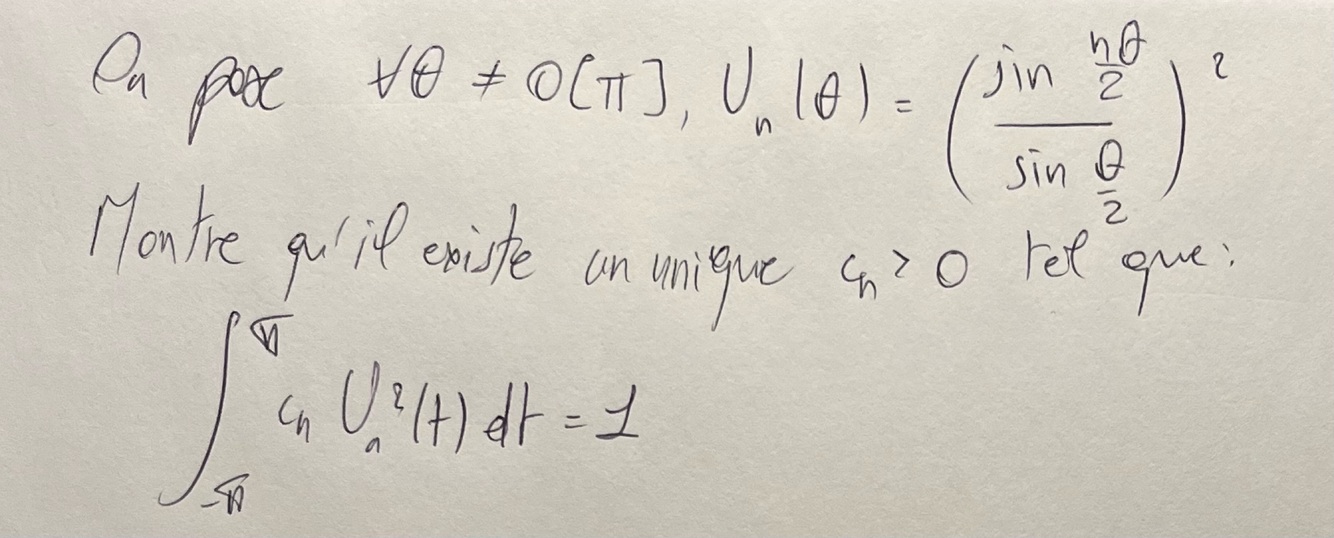 On pose ∀θ ≠ 0[π], U_n(θ) = (sin nθ/2 / sin θ/2)²
Montre qu'il existe un unique c_n > 0 tel que :
∫_{-π}^{π} c_n U_n²(t) dt = 1